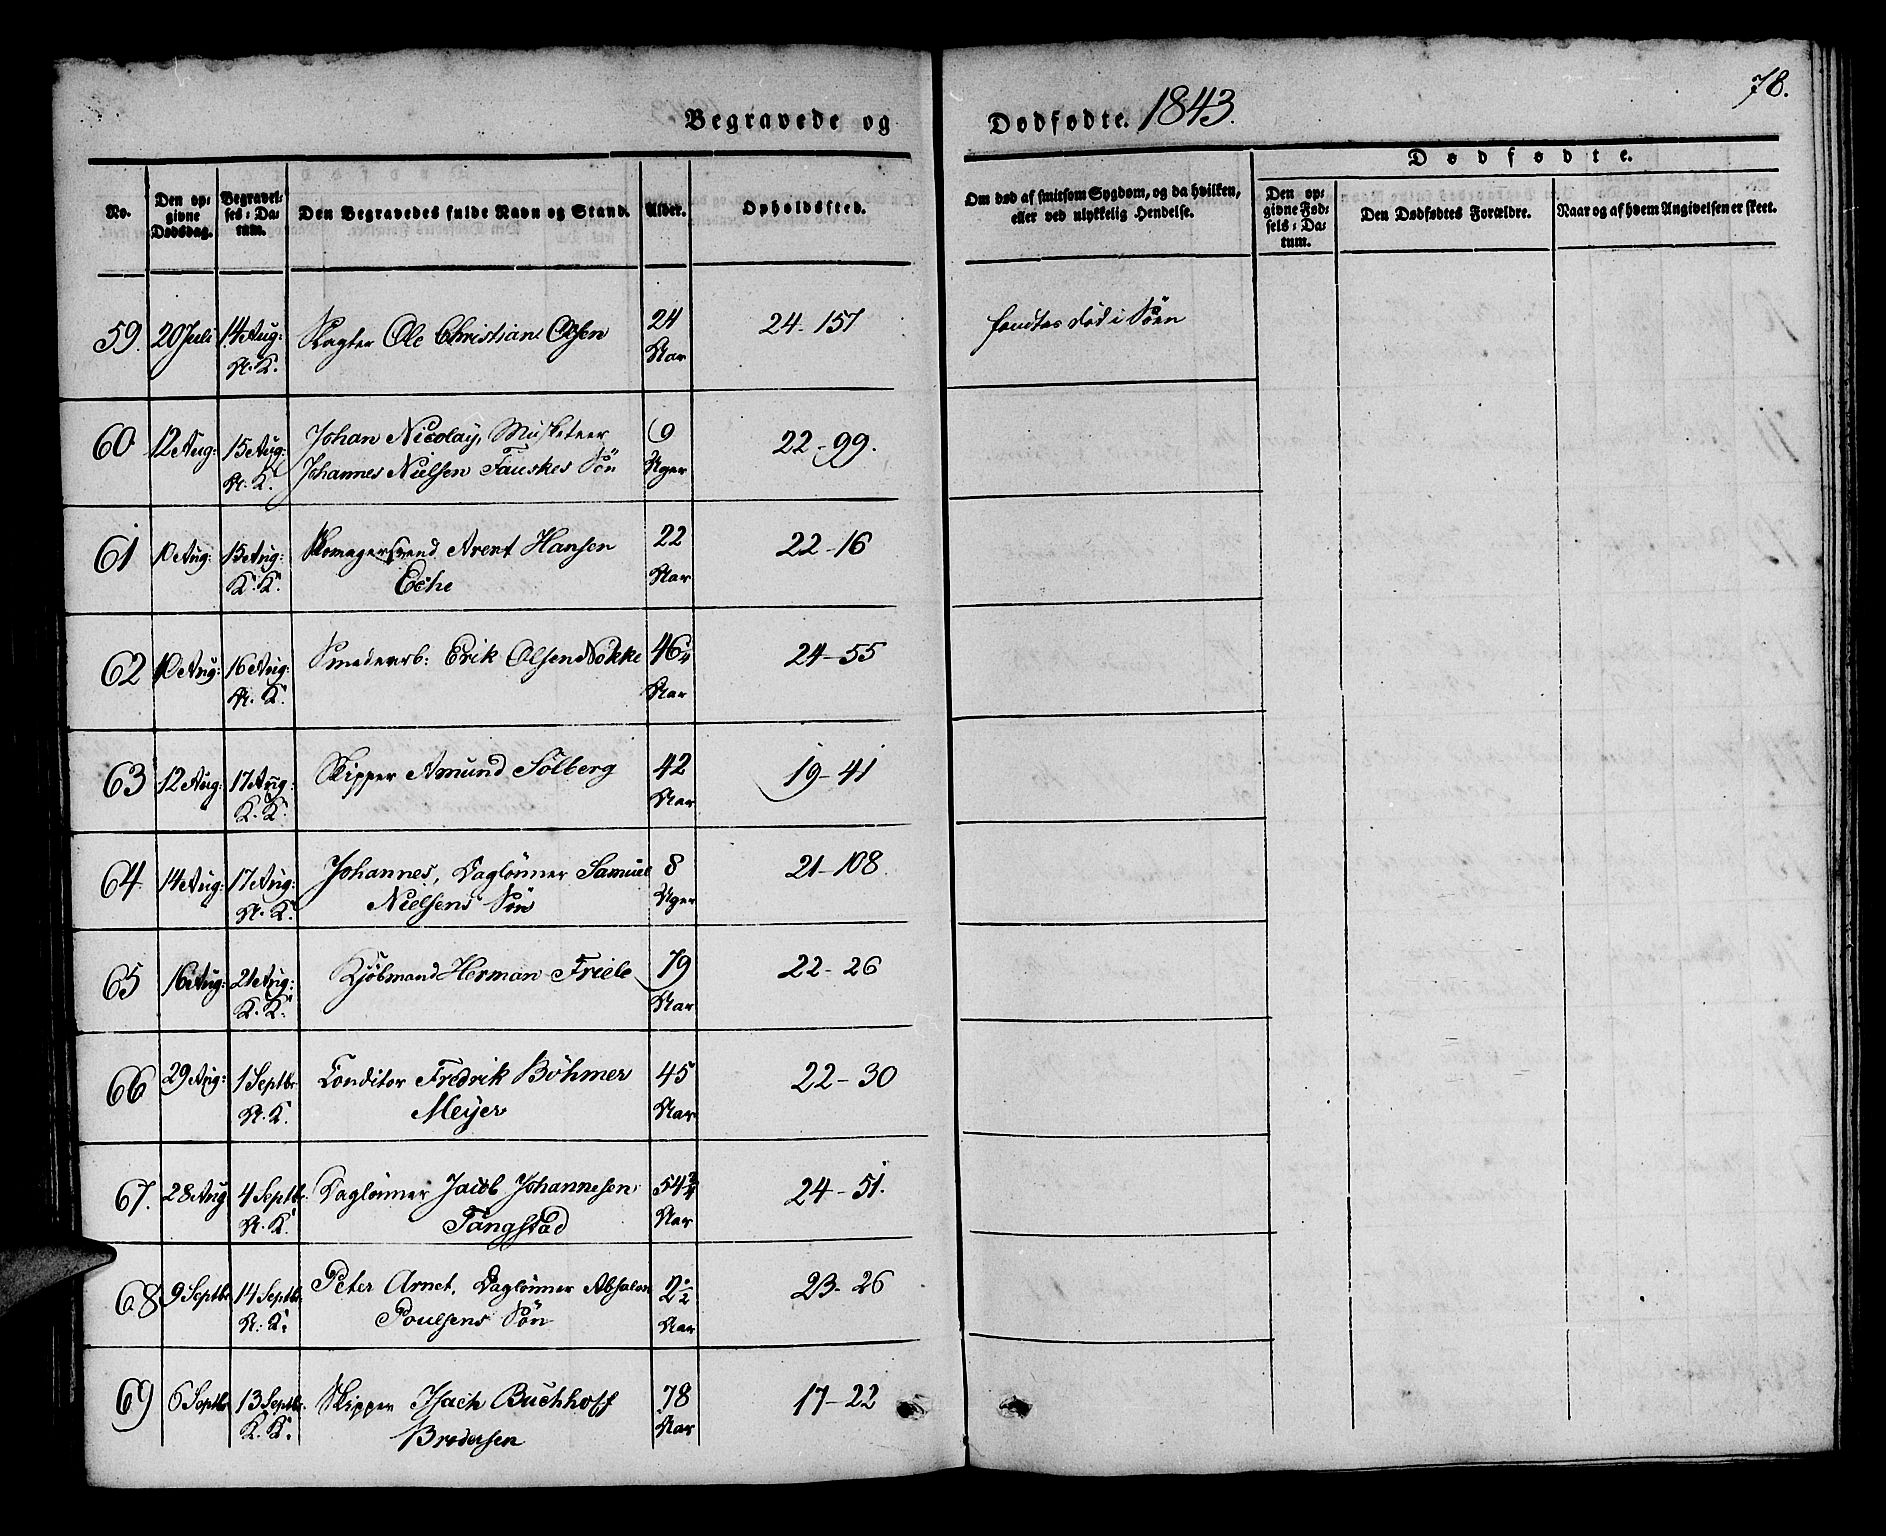 78.
Begravede og Dødfødte. 1843.
Dødfødte.
No.
Den op-
givne
Dødsdag.
Begravel-
ses-Da-
tum.
Den Begravedes fulde Navn og Stand.
Alder.
Opholdssted.
Om død af smitsom Sygdom, og da hvilken,
eller ved ulykkelig Hendelse.
Den op-
givne Fød-
sels-Da-
tum.
Den Dødfødtes Forældre.
Naar og af hvem Angivelsen er skeet.
59. 20 Juli 14 Aug: Ole Christian Olsen 24 24-157 fandtes død i Söen
N. K. Aar
60 12 Aug: 15 Aug: Johan Nicolay, Musketeer 9 22-99.
N. K. Johannes Nielsen Fauskes Sön Uger
61 10 Aug: 15 Aug: Skomagersvend Arent Hansen 22 22-16
K. K. Eche Aar
62 10 Aug: 16 Aug: Smedearb: Erik Olsen Nökke 46 1/4 24-55
N. K. Aar
63 12 Aug: 17 Aug: Skipper Amund Sölberg 42 19-41
K. K. Aar
64 14 Aug: 17 Aug: Johannes, Daglönner Samuel 8 21-108.
N. K. Nielsens Sön Uger
65 16 Aug: 21 Aug: Kjöbmand Herman Friele 79 22-26
K. K. Aar
66 29 Aug: 1 Septbr Conditor Fredrik Böhmer 45 22-30
N. K. Meyer Aar
67. 28 Aug 4 Septbr. Daglönner Jacob Johannesen 54 3/4 24-51.
N. K. Tangstad Aar
68 9 Septbr 14 Septbr. Peter Arnet, Daglönner Absalon 2 1/2 23-26
N. K. Poulsens Sön Aar
69 6 Septbr 13 Septbr. Skipper Isach Buchhoff 78 17-22
K. K. Brodersen Aar